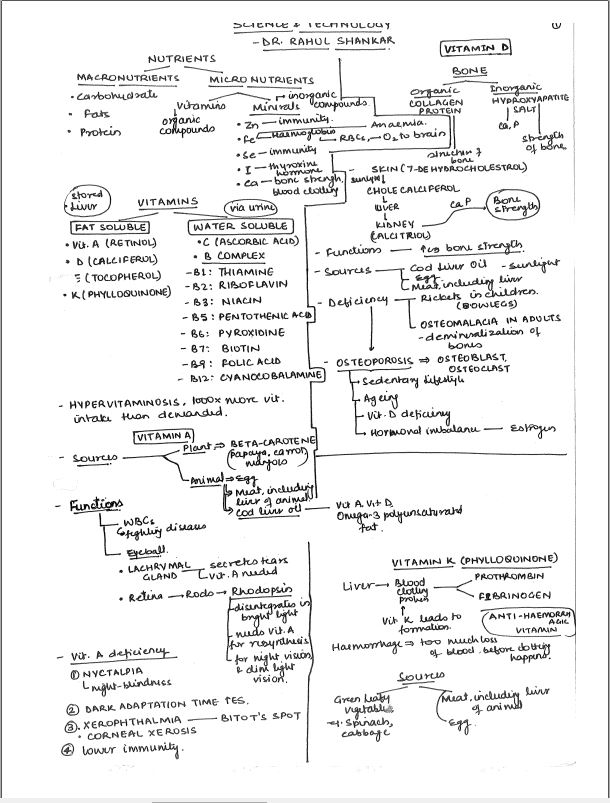 SCIENCE & TECHNOLOGY
- DR. RAHUL SHANKAR
①
NUTRIENTS
MACRONUTRIENTS
• Carbohydrate
• Fats
• Protein
MICRONUTRIENTS
Vitamins
organic compounds
Minerals
inorganic compounds
• Zn — immunity.
• Fe — Haemoglobin → RBCs, → O2 to brain
Anaemia.
• Se — immunity
• I — thyroxine hormone
• Ca — bone strength, blood clotting
stored
• Liver
VITAMINS
via urine
FAT SOLUBLE
• Vit. A (RETINOL)
• D (CALCIFEROL)
E (TOCOPHEROL)
• K (PHYLLOQUINONE)
WATER SOLUBLE
• C (ASCORBIC ACID)
• B COMPLEX
- B1: THIAMINE
- B2: RIBOFLAVIN
- B3: NIACIN
- B5: PENTOTHENIC ACID
- B6: PYROXIDINE
- B7: BIOTIN
- B9: FOLIC ACID
- B12: CYANOCOBALAMINE
- HYPERVITAMINOSIS, 1000x more vit.
intake than demanded.
VITAMIN A
- Sources
Plant ⇒ BETA-CAROTENE
(papaya, carrot, mangoes)
Animal ⇒ Egg
→ Meat, including liver of animal
→ Cod liver oil — Vit A, Vit D,
Omega-3 polyunsaturated fat.
- Functions
WBCs
↳ fighting diseases
Eyeball.
• LACHRYMAL GLAND
secretes tears
Vit. A needed
• Retina → Rods → Rhodopsin
- disintegrates in bright light
- needs Vit. A for resynthesis
- for night vision & dim light vision.
- Vit. A deficiency
① NYCTALPIA
night-blindness
② DARK ADAPTATION TIME TES.
③. XEROPHTHALMIA — BITOT'S SPOT
• CORNEAL XEROSIS
④ lower immunity.
VITAMIN D
BONE
Organic
COLLAGEN
PROTEIN
structure of bone
Inorganic
HYDROXYAPATITE
SALT
Ca, P
strength of bone.
- SKIN (7-DEHYDROCHOLESTROL)
sunlight
CHOLECALCIPEROL
LIVER
KIDNEY
(CALCITRIOL)
Ca P
Bone strength
- Functions — bone strength.
- Sources
Cod liver Oil - sunlight
Egg
Meat, including liver
- Deficiency
Rickets in children.
(BOWLEGS)
OSTEOMALACIA IN ADULTS
- demineralization of bones
- OSTEOPOROSIS ⇒ OSTEOBLAST,
OSTEOCLAST
→ Sedentary lifestyle
→ Ageing
→ Vit. D deficiency
→ Hormonal imbalance — Estrogen
VITAMIN K (PHYLLOQUINONE)
Liver → Blood clotting protein
PROTHROMBIN
FIBRINOGEN
Vit. K leads to formation.
ANTI-HAEMORRHAGIC
VITAMIN
Haemorrhage ⇒ too much loss
of blood before clotting happens.
Sources
Green leafy vegetables
eg. spinach, cabbage
Meat, including liver of animal
Egg.